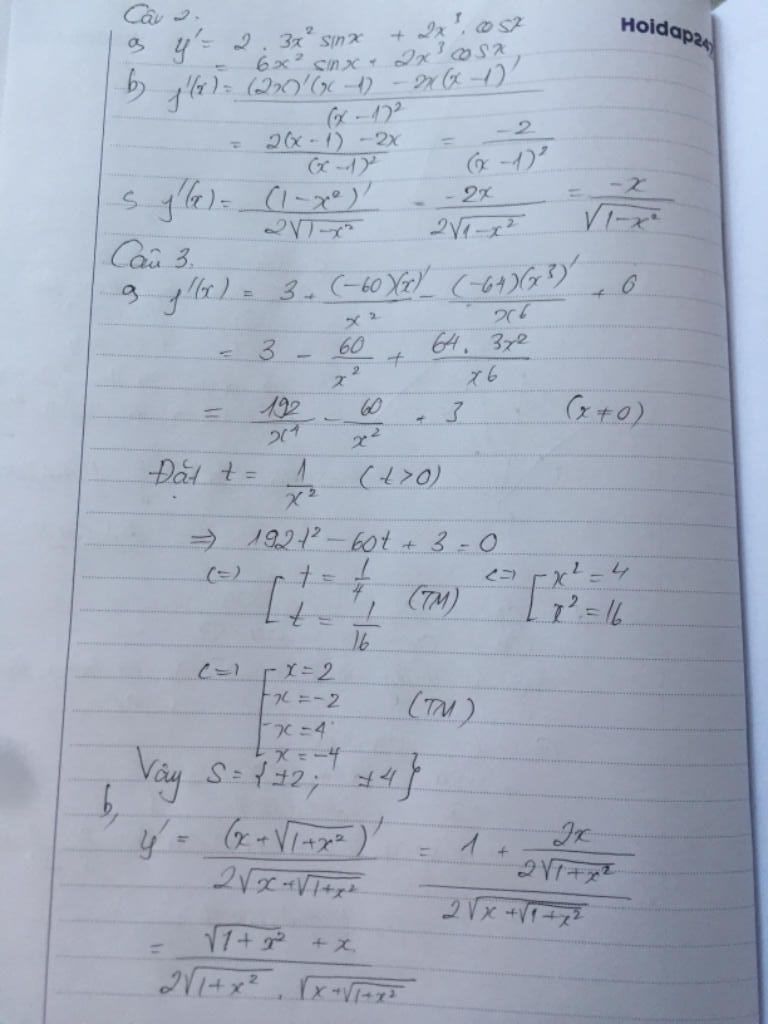 Câu 2.
Hoidap247
a, y' = 2 . 3x² sinx + 2x³ . cosx
= 6x² sinx + 2x³ cosx
b) y'(x) = ((2x)'(x-1) - 2x(x-1)') / (x-1)²
= (2(x-1) - 2x) / (x-1)² = -2 / (x-1)²
y'(x) = (1-x²)' / 2√(1-x²) = -2x / 2√(1-x²) = -x / √(1-x²)
Câu 3.
a, y'(x) = 3 + (-60)(x)' / x² - (-64)(x³)' / x6 + 0
= 3 - 60/x² + 64. 3x² / x6
= 192/x⁴ - 60/x² + 3 (x ≠ 0)
Đặt t = 1/x² (t>0)
=> 192t² - 60t + 3 = 0
<=> [ t = 1/4 ; t = 1/16 (TM) <=> [ x² = 4 ; x² = 16
<=> [ x = 2
x = -2 (TM)
x = 4
x = -4
Vậy S = {±2; ±4}
b,
y' = (x+√(1+x²))' / 2√(x+√(1+x²)) = (1 + 2x / 2√(1+x²)) / 2√(x+√(1+x²))
= (√(1+x²) + x) / (2√(1+x²) . √(x+√(1+x²)))